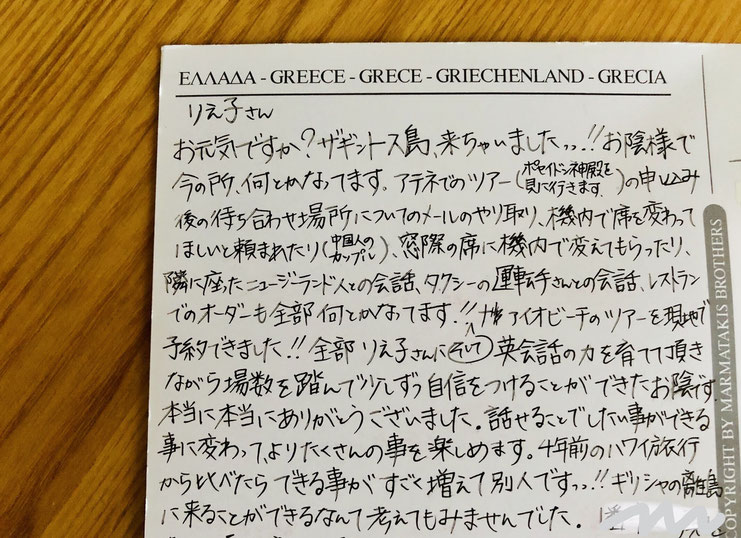 ΕΛΛΑΔΑ - GREECE - GRECE - GRIECHENLAND - GRECIA
りえ子さん
お元気ですか?ザギントース島、来ちゃいましたっっ!!お陰様で
今の所、何とかなってます。アテネでのツアー(ポセイドン神殿を見に行きます。)の申し込み
後の待ち合わせ場所についてのメールのやり取り、機内で席を変わって
ほしいと頼まれたり(中国人のカップル)、窓際の席に機内で変えてもらったり、
隣に座ったニュージーランド人との会話、タクシーの運転手さんとの会話、レストラン
でのオーダーも全部何とかなってます!!ナヴァイオビーチのツアーを現地で
予約できました!!全部りえ子さんにそして英会話の力を育てて頂き
ながら場数を踏んで少しずつ自信をつけることができたお陰です。
本当に本当にありがとうございました。話せることでしたい事ができる
事に変わって、よりたくさんの事を楽しめます。4年前のハワイ旅行
から比べたらできる事がすごく増えて別人ですっっ!!ギリシャの離島
に来ることができるなんて考えてもみませんでした。
COPYRIGHT BY MARMATAKIS BROTHERS